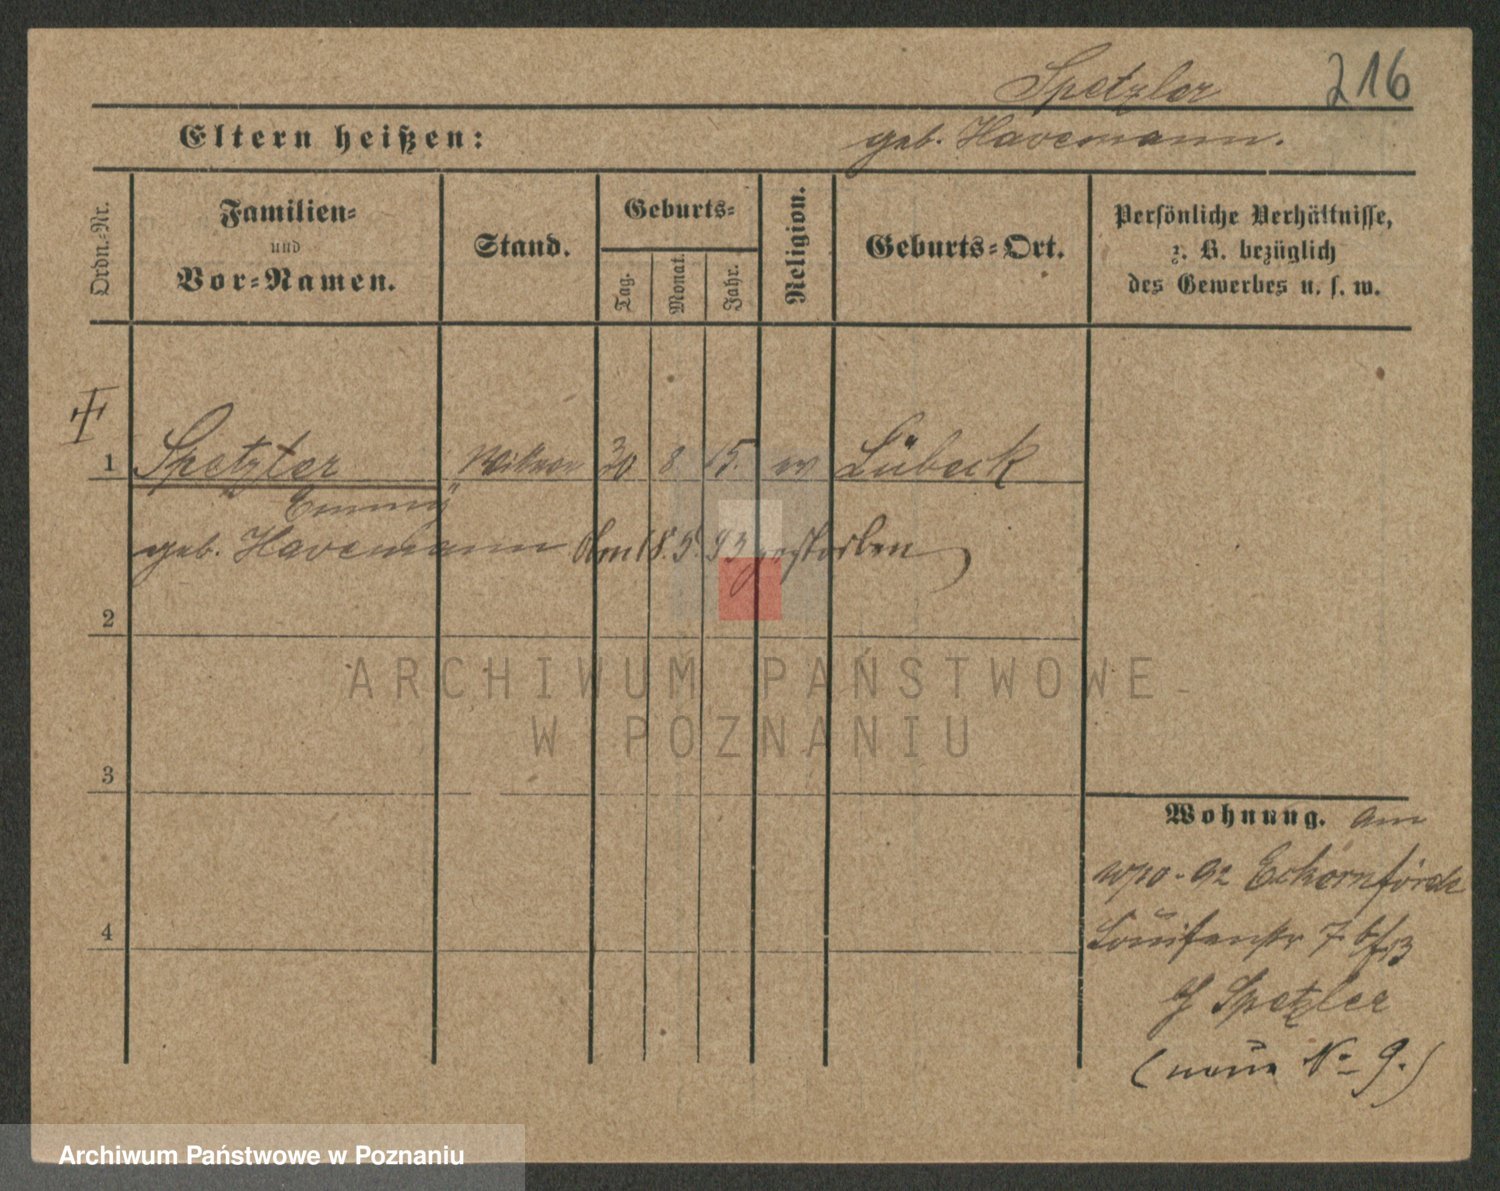 Spetzler 216
Eltern heißen: geb. Havemann.
Ordn.-Nr.
Familien-
und
Vor-Namen.
Stand.
Geburts-
Tag.
Monat.
Jahr.
Religion.
Geburts-Ort.
Persönliche Verhältnisse,
z. B. bezüglich
des Gewerbes u. s. w.
1 Spetzler 30 8 15. ev Lübeck
Emmy
geb. Havemann Am 18. 5. 93 gestorben
2
3
4
ARCHIWUM PAŃSTWOWE
W POZNANIU
Wohnung. am
92 Eckernförde
Louisenstr 7. b/
Spetzler
(neue No 9.)
Archiwum Państwowe w Poznaniu